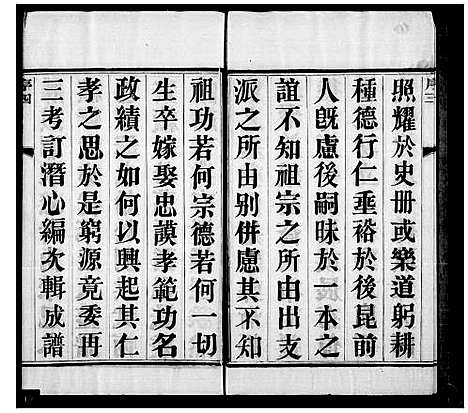 照耀於史冊或樂道躬耕
種德行仁垂裕於後昆前
人旣慮後嗣昧於一本之
誼不知祖宗之所由出支
派之所由别併慮其不知
祖功若何宗德若何一切
生卒嫁娶忠謨孝範功名
政績之如何以興起其仁
孝之思於是窮源竟委再
三考訂潛心編次輯成譜
序四